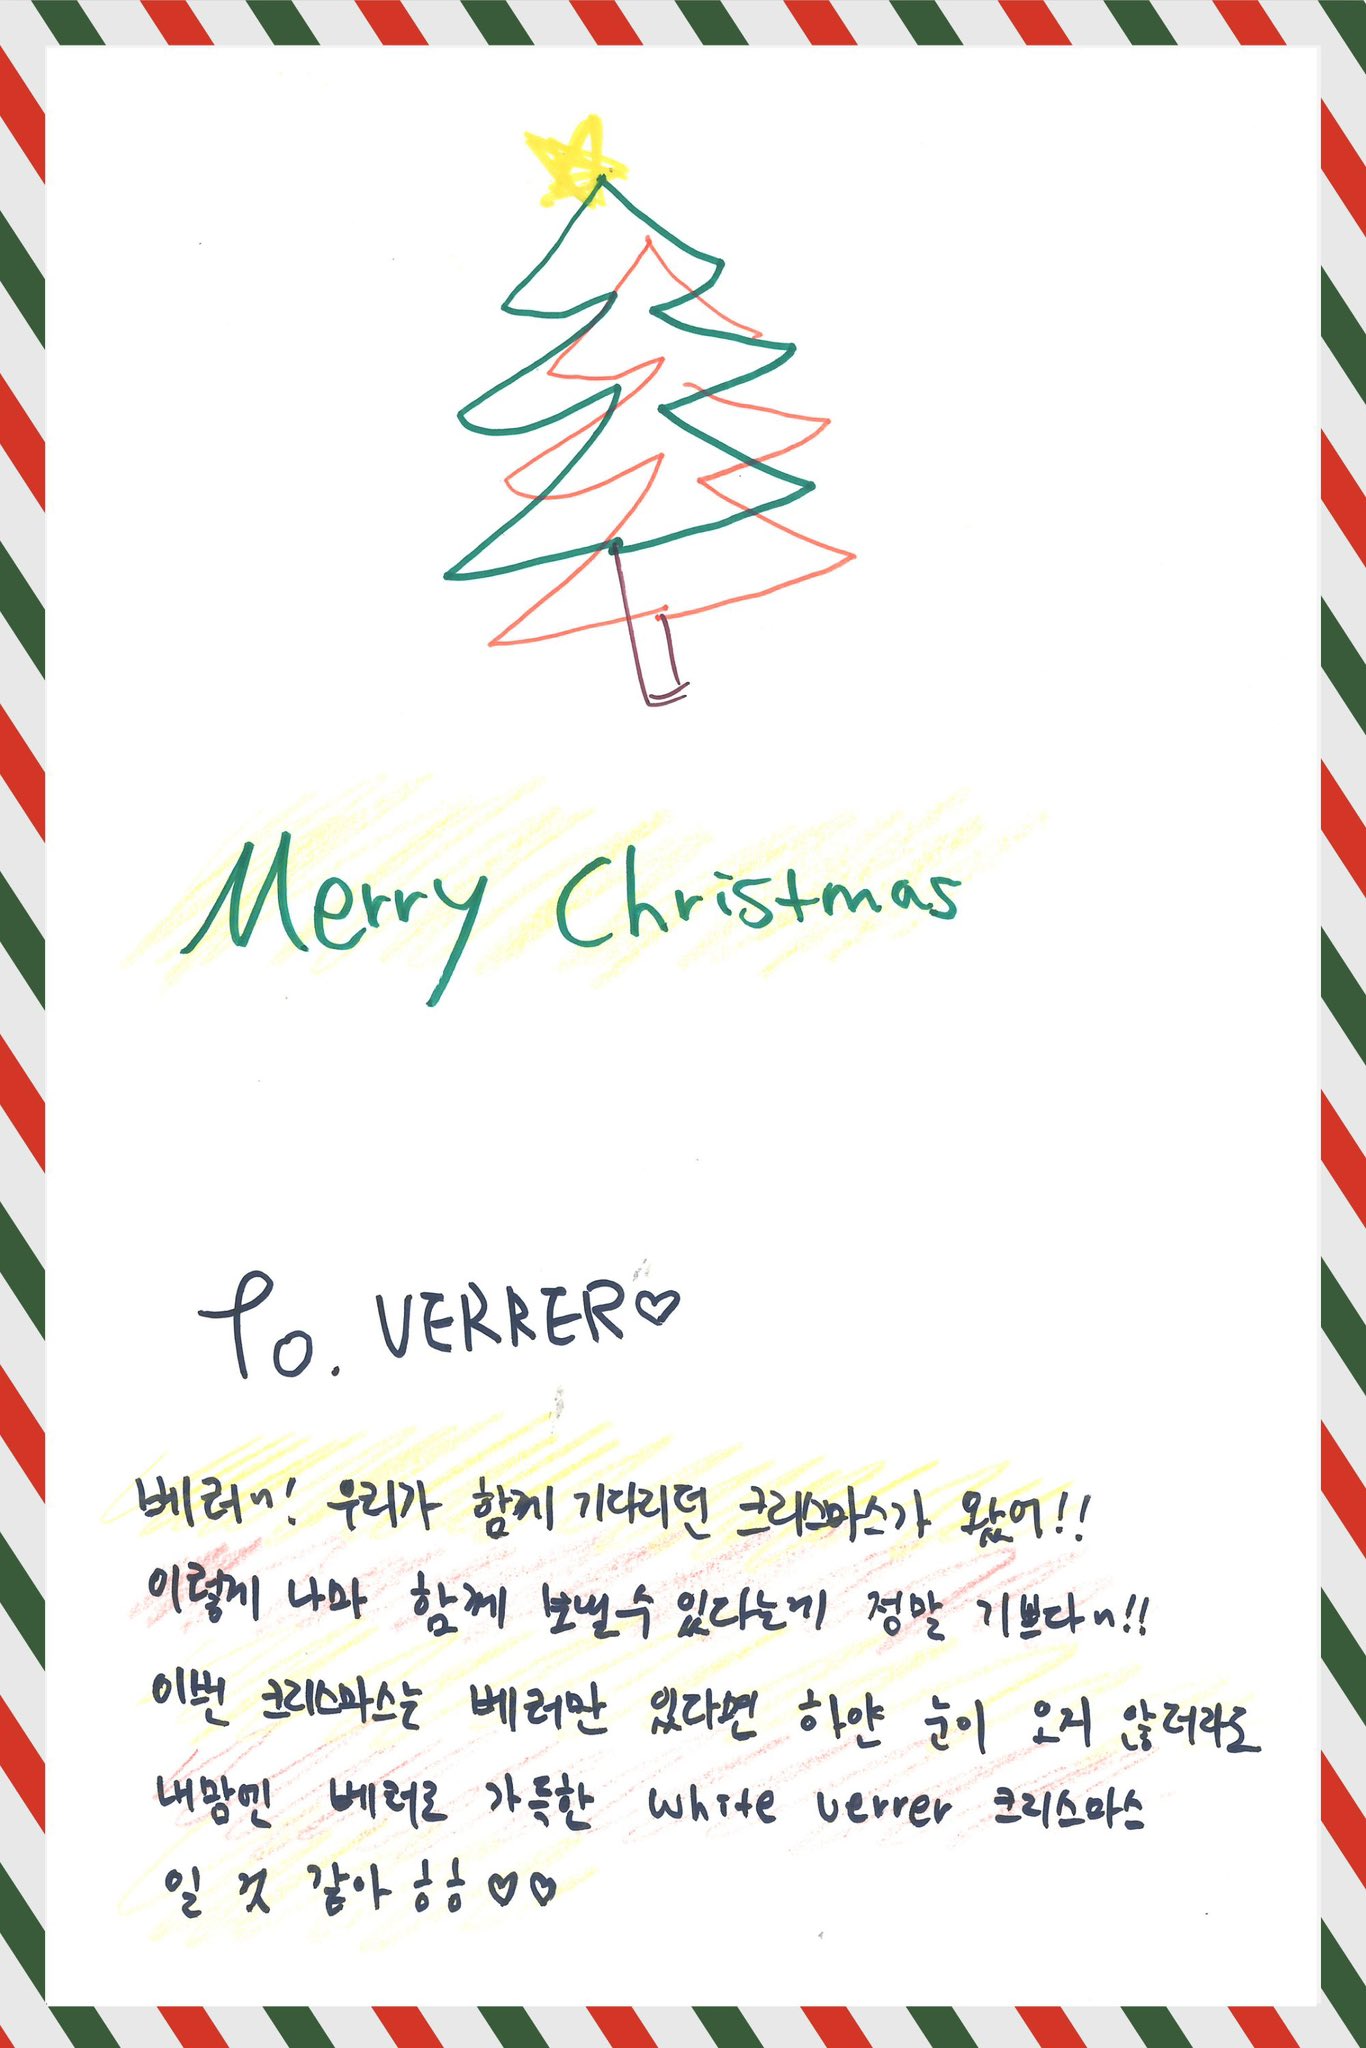 Merry Christmas
To. VERRER♡
베러~! 우리가 함께 기다리던 크리스마스가 왔어!!
이렇게 나마 함께 보낼수 있다는게 정말 기쁘다~!!
이번 크리스마스는 베러만 있다면 하얀 눈이 오지 않더라도
내맘엔 베러로 가득한 white verrer 크리스마스
일 것 같아 ㅎㅎ♡♡